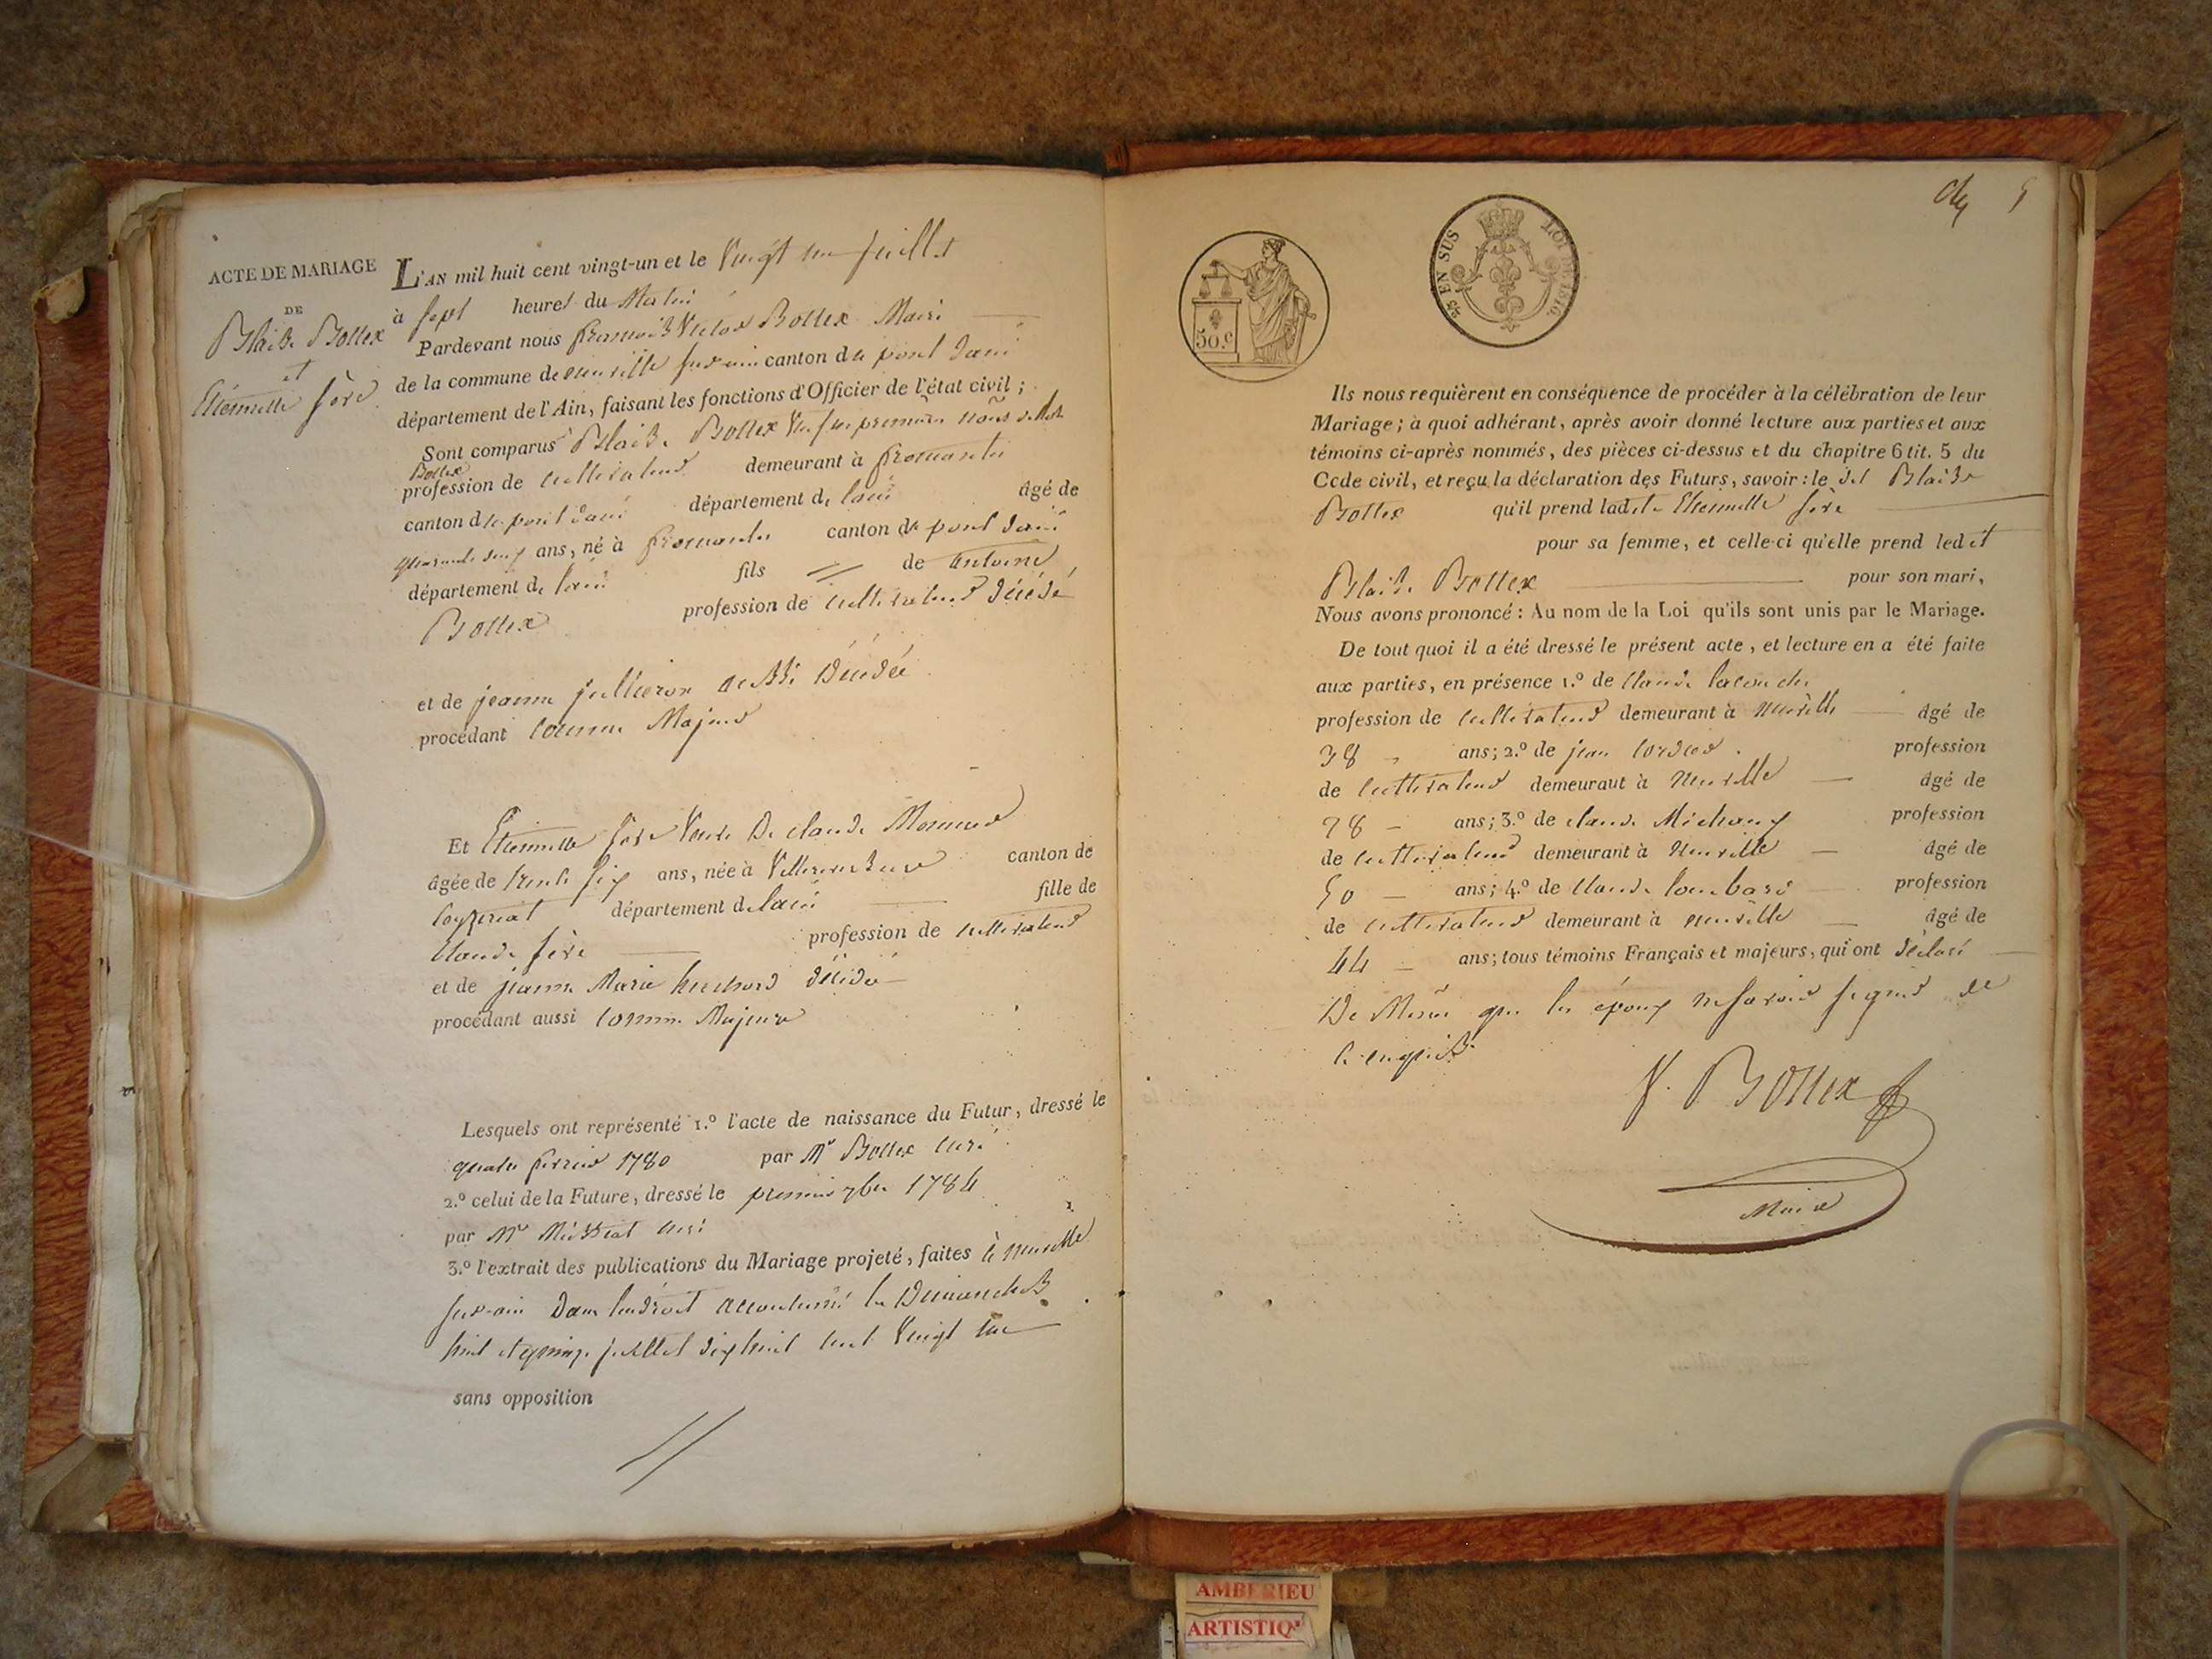 ACTE DE MARIAGE
DE
Blaise Bollex
et
Etiennette fère
L'AN mil huit cent vingt-un et le Vingt un juillet
à sept heures du Matin
Pardevant nous françois Victor Bollex Maire
de la commune de neuville sur ain canton de pont dain
département de l'Ain, faisant les fonctions d'Officier de l'état civil ;
Sont comparus Blaise Bollex premiere
Bollex
profession de cultivateur demeurant à fromente
canton de pont dain département de lain âgé de
quarante ans, né à fromente canton de pont dain
département de lain fils de antoine
Bollex profession de cultivateur décédé
et de jeanne jullieron aussi décédée
procédant comme Majeur
Et Etiennette fère Veuve De claude Monnier
âgée de trente six ans, née à Villereversure canton de
Ceyzeriat département de lain fille de
Claude fère profession de cultivateur
et de jeanne Marie décédé
procédant aussi comme Majeure
Lesquels ont représenté 1.º l'acte de naissance du Futur, dressé le
quatre fevrier 1780 par Mr Bollex curé
2.º celui de la Future, dressé le premier 7bre 1784
par Mr curé
3.º l'extrait des publications du Mariage projeté, faites à neuville
sur-ain Dans lendroit accoutumé les Dimanches
huit et quinze juillet dix huit cent Vingt un
sans opposition
5
50.c
25 EN SUS
LOI DE 1816.
Ils nous requièrent en conséquence de procéder à la célébration de leur
Mariage ; à quoi adhérant, après avoir donné lecture aux parties et aux
témoins ci-après nommés, des pièces ci-dessus et du chapitre 6 tit. 5 du
Ccde civil, et reçu la déclaration des Futurs, savoir : le dit Blaise
Bollex qu'il prend ladite Etiennette fère
pour sa femme, et celle-ci qu'elle prend ledit
Blaise Bollex pour son mari,
Nous avons prononcé : Au nom de la Loi qu'ils sont unis par le Mariage.
De tout quoi il a été dressé le présent acte, et lecture en a été faite
aux parties, en présence 1.º de Claude
profession de cultivateur demeurant à neuville âgé de
38 ans ; 2.º de jean Cordier profession
de cultivateur demeuraut à neuville âgé de
78 ans ; 3.º de claude Michaux profession
de cultivateur demeurant à neuville âgé de
50 ans ; 4.º de Claude Lombard profession
de cultivateur demeurant à neuville âgé de
44 ans ; tous témoins Français et majeurs, qui ont déclaré
De Même que les époux ne savoir signer de
ce enquis
V. Bollex
Maire
AMBERIEU
ARTISTIQ